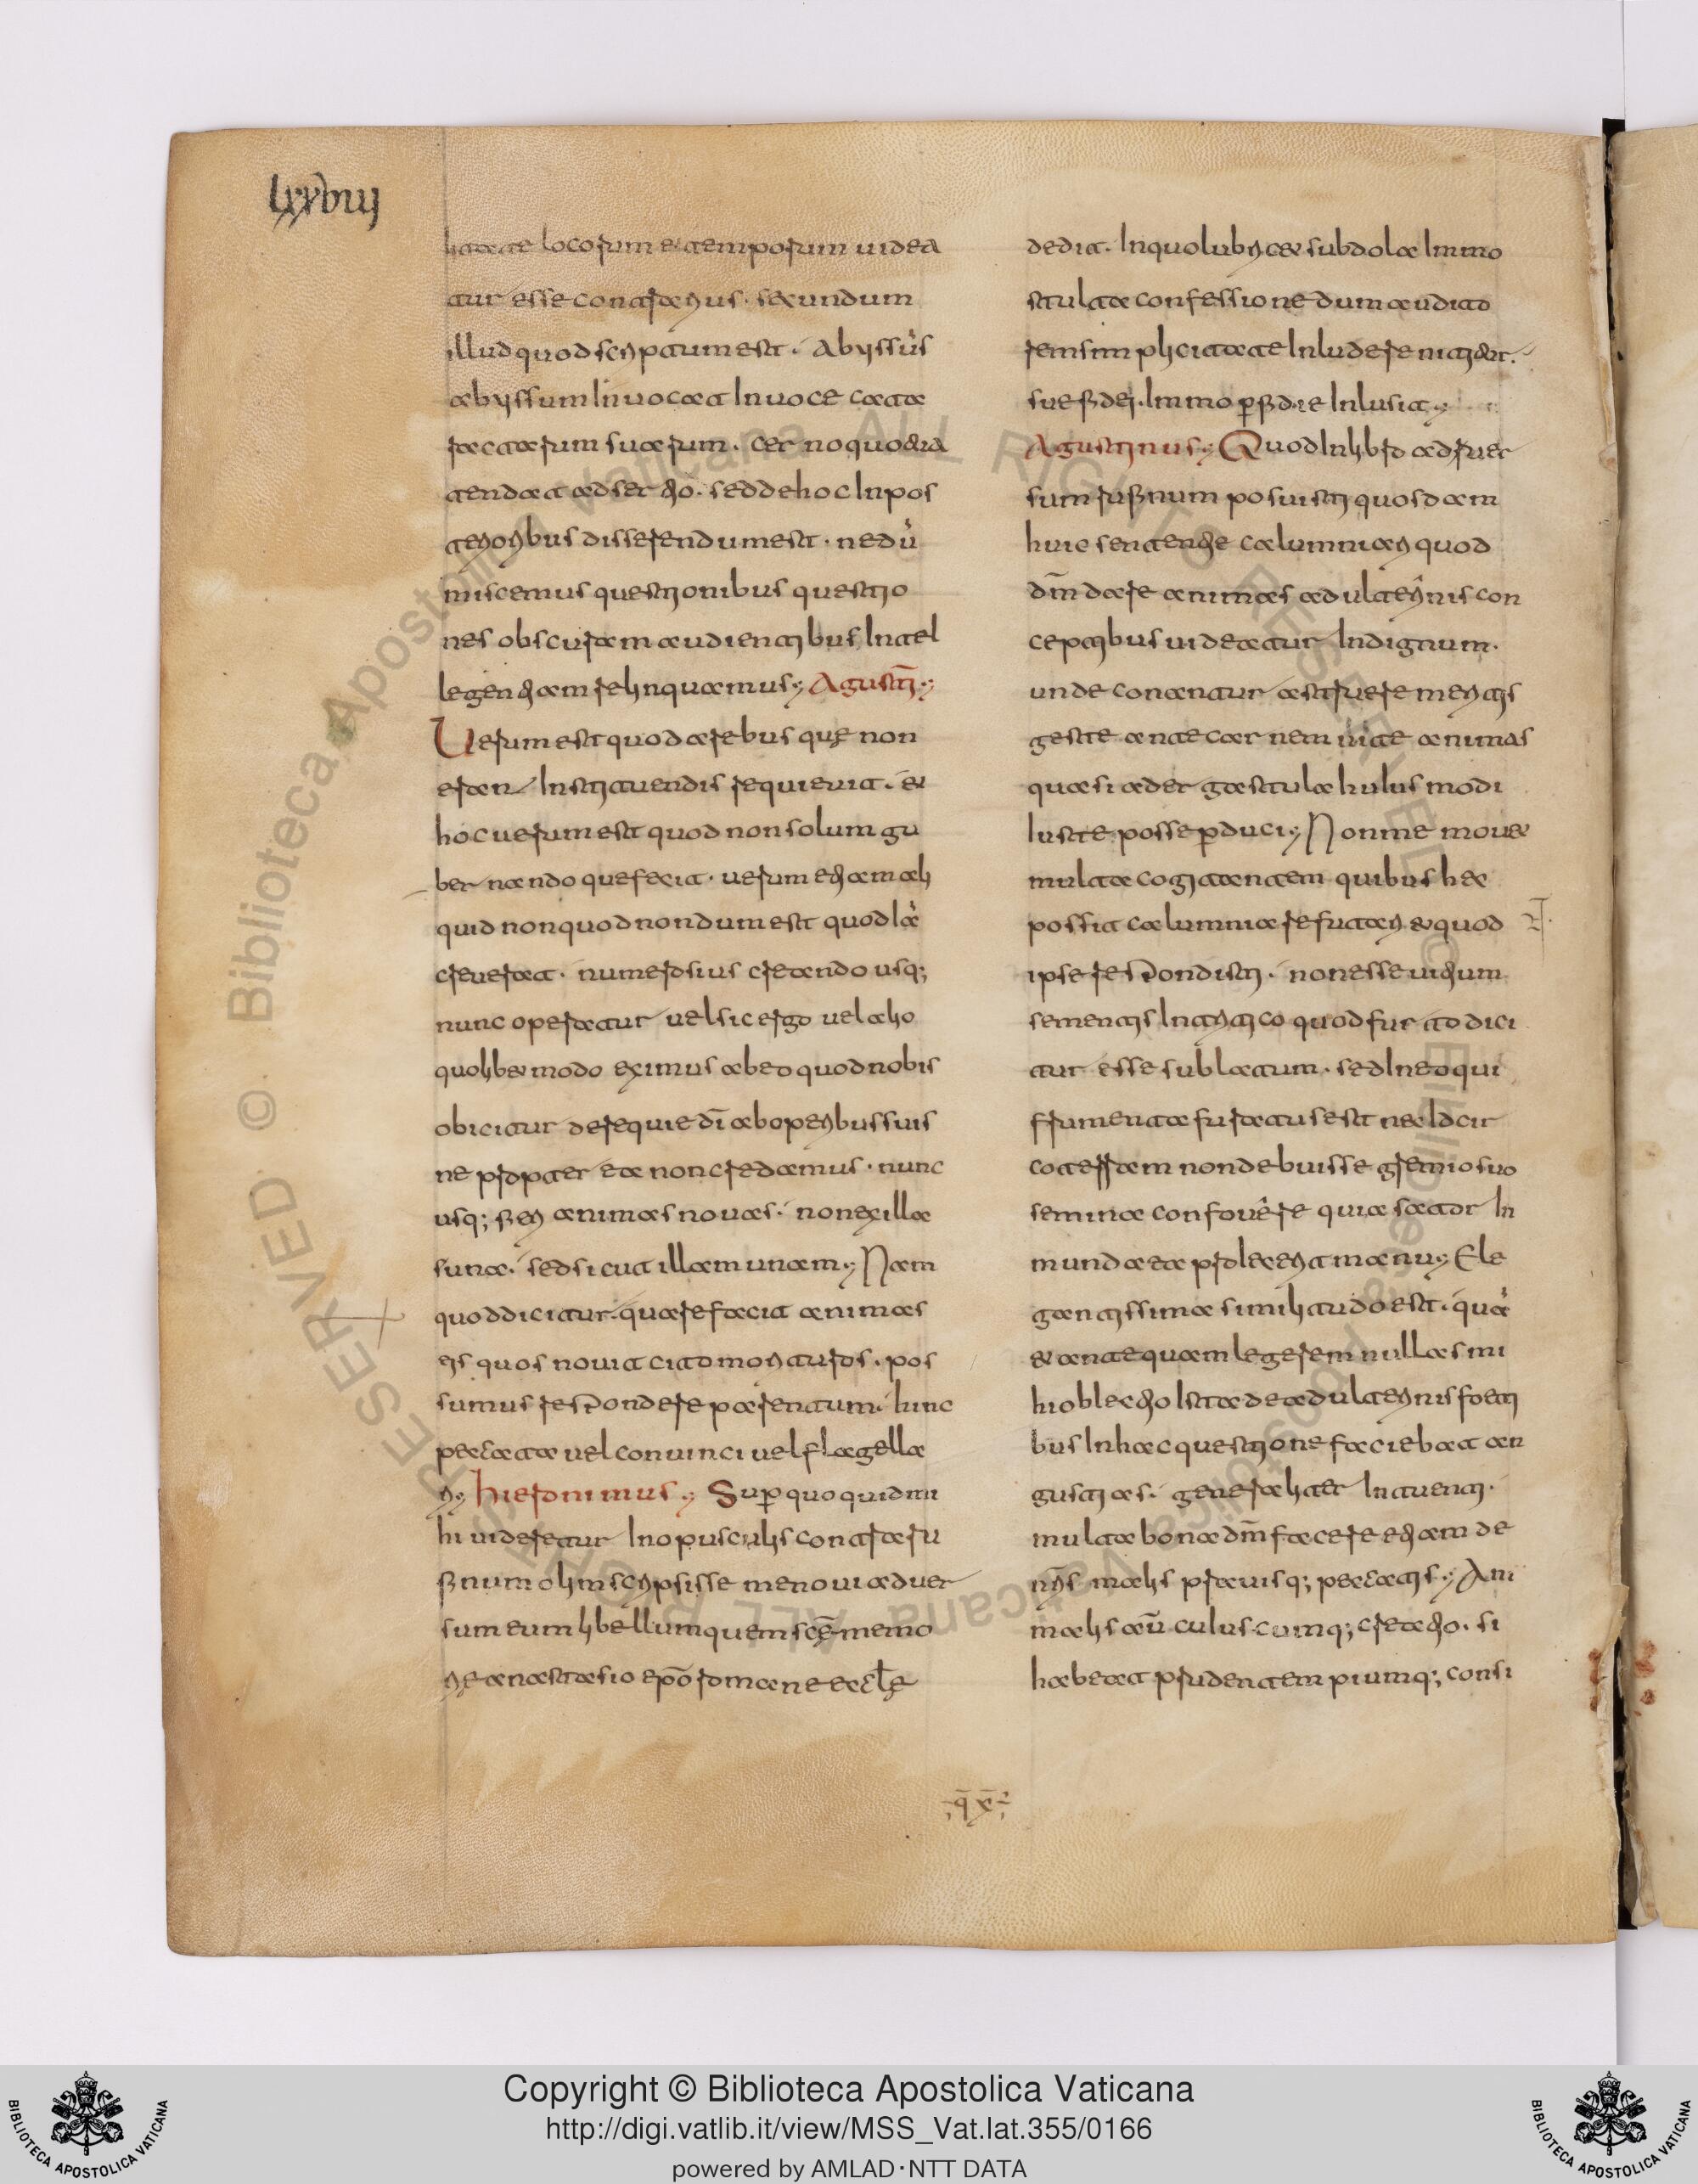 lxxviiij
litate locorum et temporum videa
tur esse contrarius. secundum
illud quod scriptum est. Abyssus
abyssum Invocat In voce cata
ractarum suarum. Cerno quo etia
tendat ad sertio. sed de hoc In pos
terioribus disserendum est. ne dū
miscemus questionibus questio
nes obscuram audientibus Intel
legentiam relinquamus; Agustī;
Uerum est quod a rebus quę non
eran Instituendis requievit. et
hoc verum est quod non solum gu
bernando que fecit. verum etiam ali
quid non quod nondum est quod Ia
creverat. numerosius creando usq;
nunc operatur vel sic ergo vel alio
quolibet modo eximus ab eo quod nobis
obicitur de requie dī ab operibus suis
ne propter ea non credamus. nunc
usq; fieri animas novas. non ex illa
suna. sed sicut illam unam; Nam
quod dicitur. quare facit animas
eis quos novit cito morituros. pos
sumus respondere parentum hinc
peccata vel convinci vel flagella
ri; Hieronimus; Sup quo quid mi
hi videretur In opusculis contra ru
finum olim scripsisse me novi adver
sum eum libellum quem scē memo
rię anastasio epō romane ecclę
dedit. In quo lubrica et subdola Immo
stulta confessione dum audito
rem simplicitate Inludere nititur.
sue fidei. Immo pfidie Inlusit;
Agustinus; Quod In libro adver
sum rufinum posuisti quosdam
huic sententie calumniari quod
dm̄ dare animas adulterinis con
ceptibus videatur Indignum.
unde conantur astruere meritis
geste ante carnem vite animas
quasi ad ergastula huius modi
Iuste posse pduci; Non me movet
multa cogitantem quibus hec
possit calumnia refutari et quod
ipse respondisti. non esse vitium
sementis In tritico quod furto dici
tur esse sublatum. sed In eo qui
frumenta furatus est nec Idcir
co terram non debuisse gremio suo
semina confovere quia sator In
munda ea proIecerit manu; Ele
gantissima similitudo est. quā
et ante quam legerem nullas mi
hi oblectio Ista de adulterinis foeti
bus In hac questione faciebat an
gustias. generaliter Intuenti.
multa bona dm̄ facere etiam de
nr̄is malis pravisq; peccatis; Ani
malis aū cuIuscumq; creatio. si
habeat prudentem piumq; consi
q̄ x̄
Copyright © Biblioteca Apostolica Vaticana
http://digi.vatlib.it/view/MSS_Vat.lat.355/0166
powered by AMLAD·NTT DATA
BIBLIOTECA APOSTOLICA VATICANA
BIBLIOTECA APOSTOLICA VATICANA